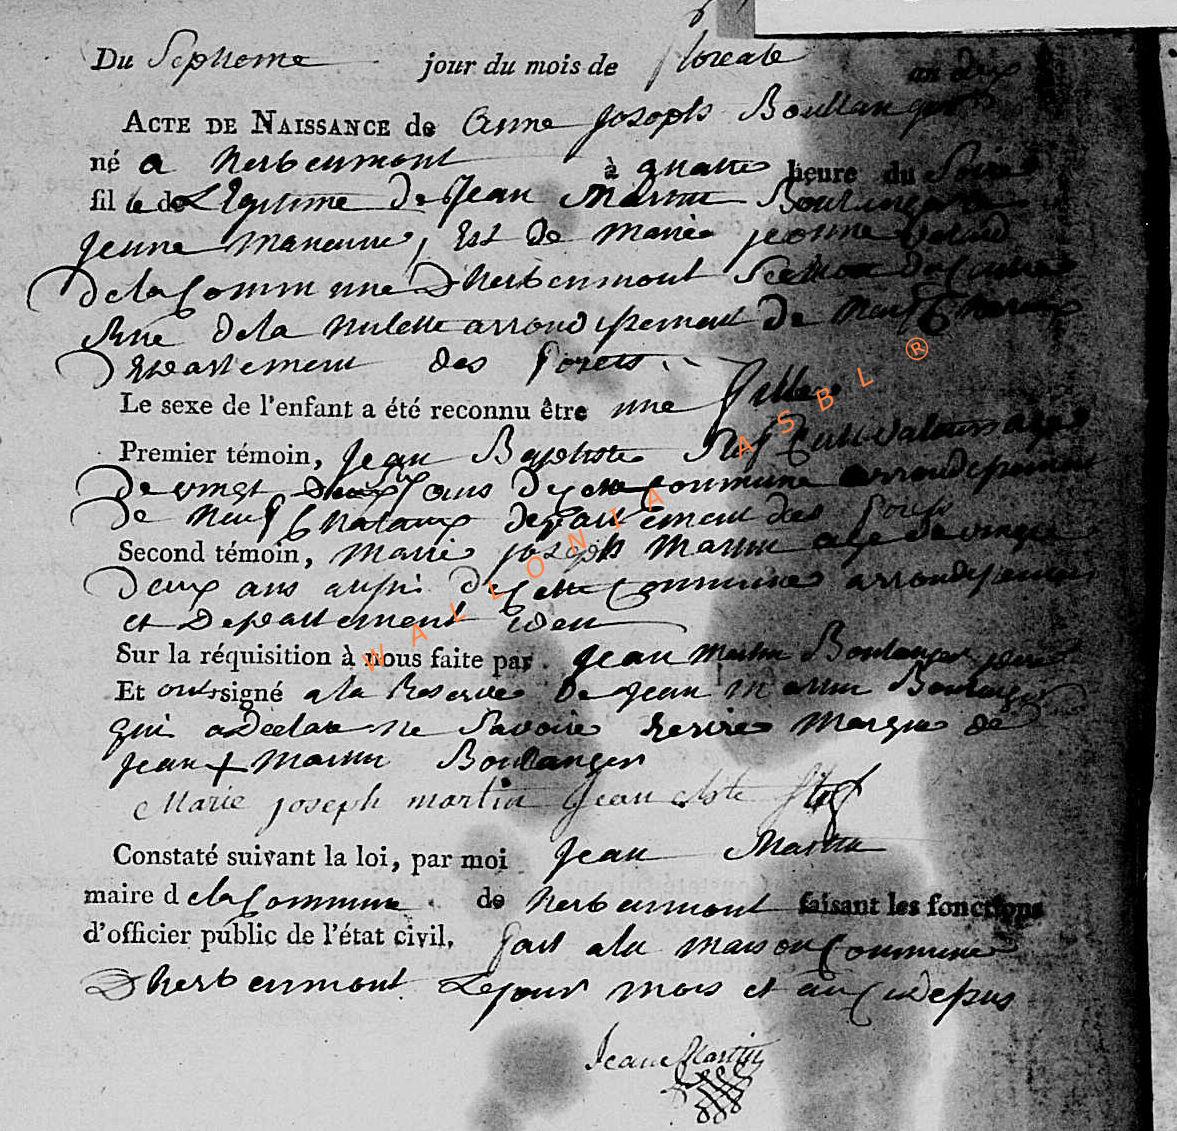 Du Septieme jour du mois de floreale an dix
ACTE DE NAISSANCE de Anne Joseph Boullanger
né a herbeumont à quatre heure du Soire
fil le de Légitime De Jean Martin Boulanger
jeune maneuvre, Est de Marie jeanne
de la Commune Dherbeumont
Rue de la Mulette arrondissement De Neuf Chateaux
Departement des forets.
Le sexe de l'enfant a été reconnu être une fille
Premier témoin, Jean Baptiste Cultivateur agé
De vingt ans De cette Commune arrondissement
de Neuf Chataux departement des forest
Second témoin, Marie joseph Martin age de vingt
Deux ans aussi De Cette Commune arrondissement
et Departement idem
Sur la réquisition à nous faite par Jean Martin Boulanger pere
Et ont signé a la Reserve De Jean Martin Boulanger
qui a Declare ne Savoire Ecrire Marque de
Jean + Martin Boulanger
Marie joseph martin Jean
Constaté suivant la loi, par moi Jean Martin
maire d e la Commune de herbeumont faisant les fonctions
d'officier public de l'état civil. fait a la maison Commune
Dherbeumont Le jour mois et an Cidessus
Jean Martin
WALLONIA ASBL ®